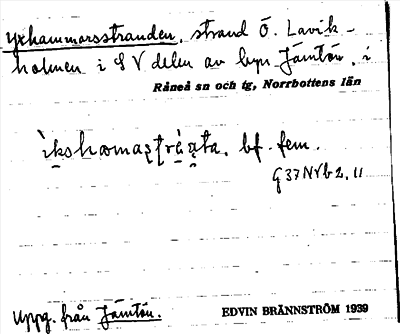 Yxhammarsstranden, strand Ö. Lavik-
holmen i S V delen av byn Jämtön, i
Råneå sn och tg, Norrbottens län
bf. fem.
G 37 NVb 2, 11
Uppg. från Jämtön.
EDVIN BRÄNNSTRÖM 1939